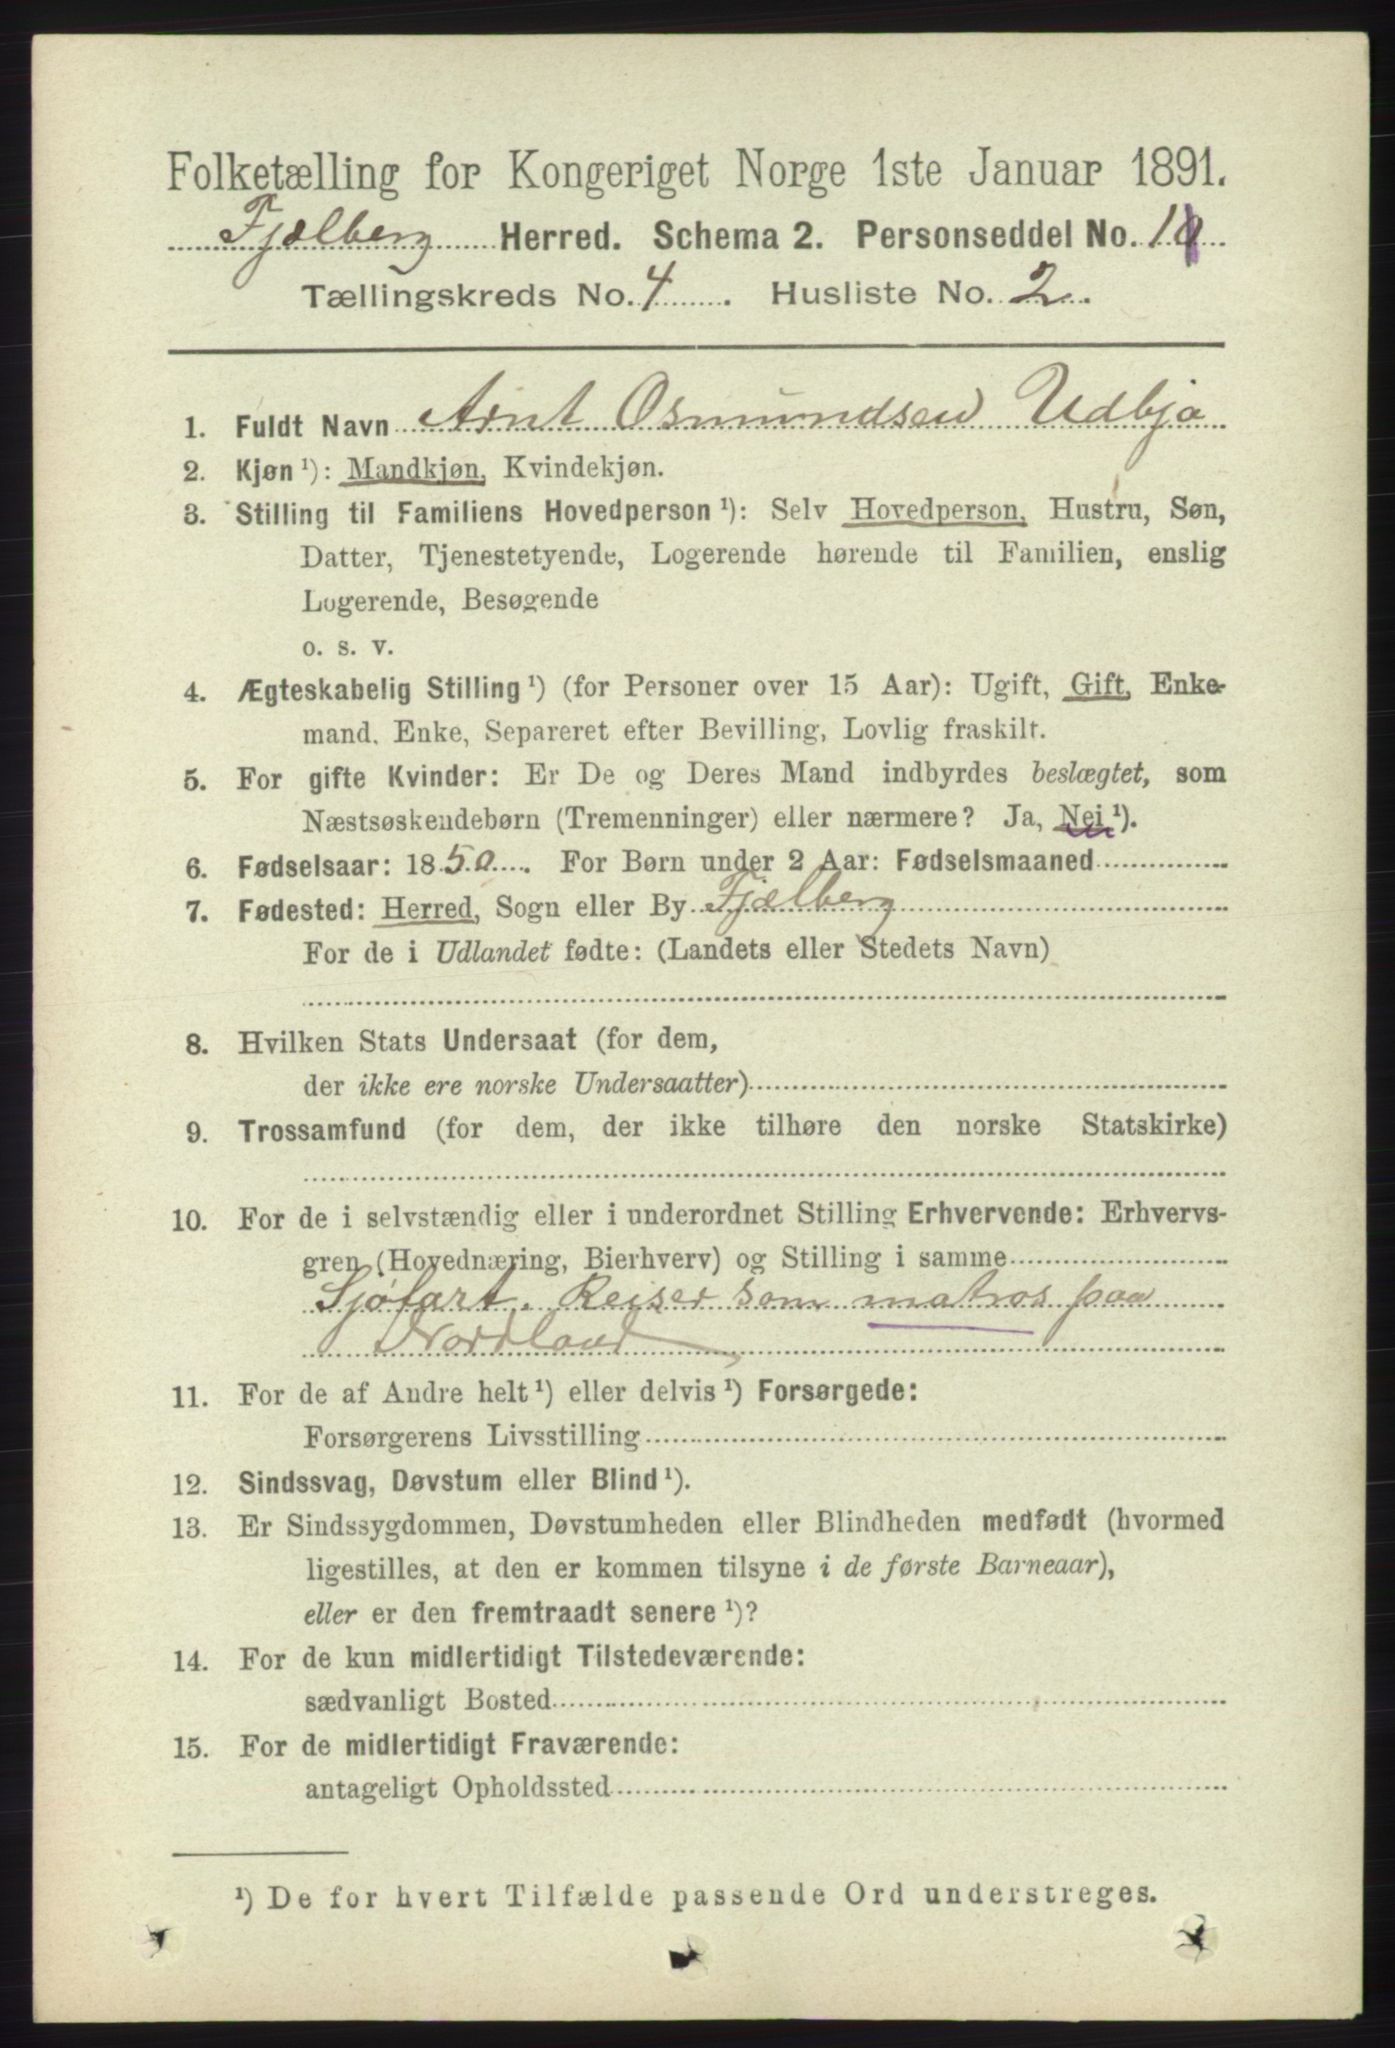 Folketælling for Kongeriget Norge 1ste Januar 1891.
Fjælberg Herred. Schema 2. Personseddel No. 11
Tællingskreds No. 4. Husliste No. 2.
1. Fuldt Navn Arnt Osmundsen Udbjo
2. Kjøn ¹): Mandkjøn, Kvindekjøn.
3. Stilling til Familiens Hovedperson ¹): Selv Hovedperson, Hustru, Søn,
Datter, Tjenestetyende, Logerende hørende til Familien, enslig
Logerende, Besøgende
o. s. v.
4. Ægteskabelig Stilling ¹) (for Personer over 15 Aar): Ugift, Gift, Enke-
mand, Enke, Separeret efter Bevilling, Lovlig fraskilt.
5. For gifte Kvinder: Er De og Deres Mand indbyrdes beslægtet, som
Næstsøskendebørn (Tremenninger) eller nærmere? Ja, Nei ¹).
6. Fødselsaar: 1850. For Børn under 2 Aar: Fødselsmaaned
7. Fødested: Herred, Sogn eller By Fjælberg
For de i Udlandet fødte: (Landets eller Stedets Navn)
8. Hvilken Stats Undersaat (for dem,
der ikke ere norske Undersaatter)
9. Trossamfund (for dem, der ikke tilhøre den norske Statskirke)
10. For de i selvstændig eller i underordnet Stilling Erhvervende: Erhvervs-
gren (Hovednæring, Bierhverv) og Stilling i samme
Sjøfart. Reiser som matros paa
Nordland
11. For de af Andre helt ¹) eller delvis ¹) Forsørgede:
Forsørgerens Livsstilling
12. Sindssvag, Døvstum eller Blind ¹).
13. Er Sindssygdommen, Døvstumheden eller Blindheden medfødt (hvormed
ligestilles, at den er kommen tilsyne i de første Barneaar),
eller er den fremtraadt senere ¹)?
14. For de kun midlertidigt Tilstedeværende:
sædvanligt Bosted
15. For de midlertidigt Fraværende:
antageligt Opholdssted
¹) De for hvert Tilfælde passende Ord understreges.